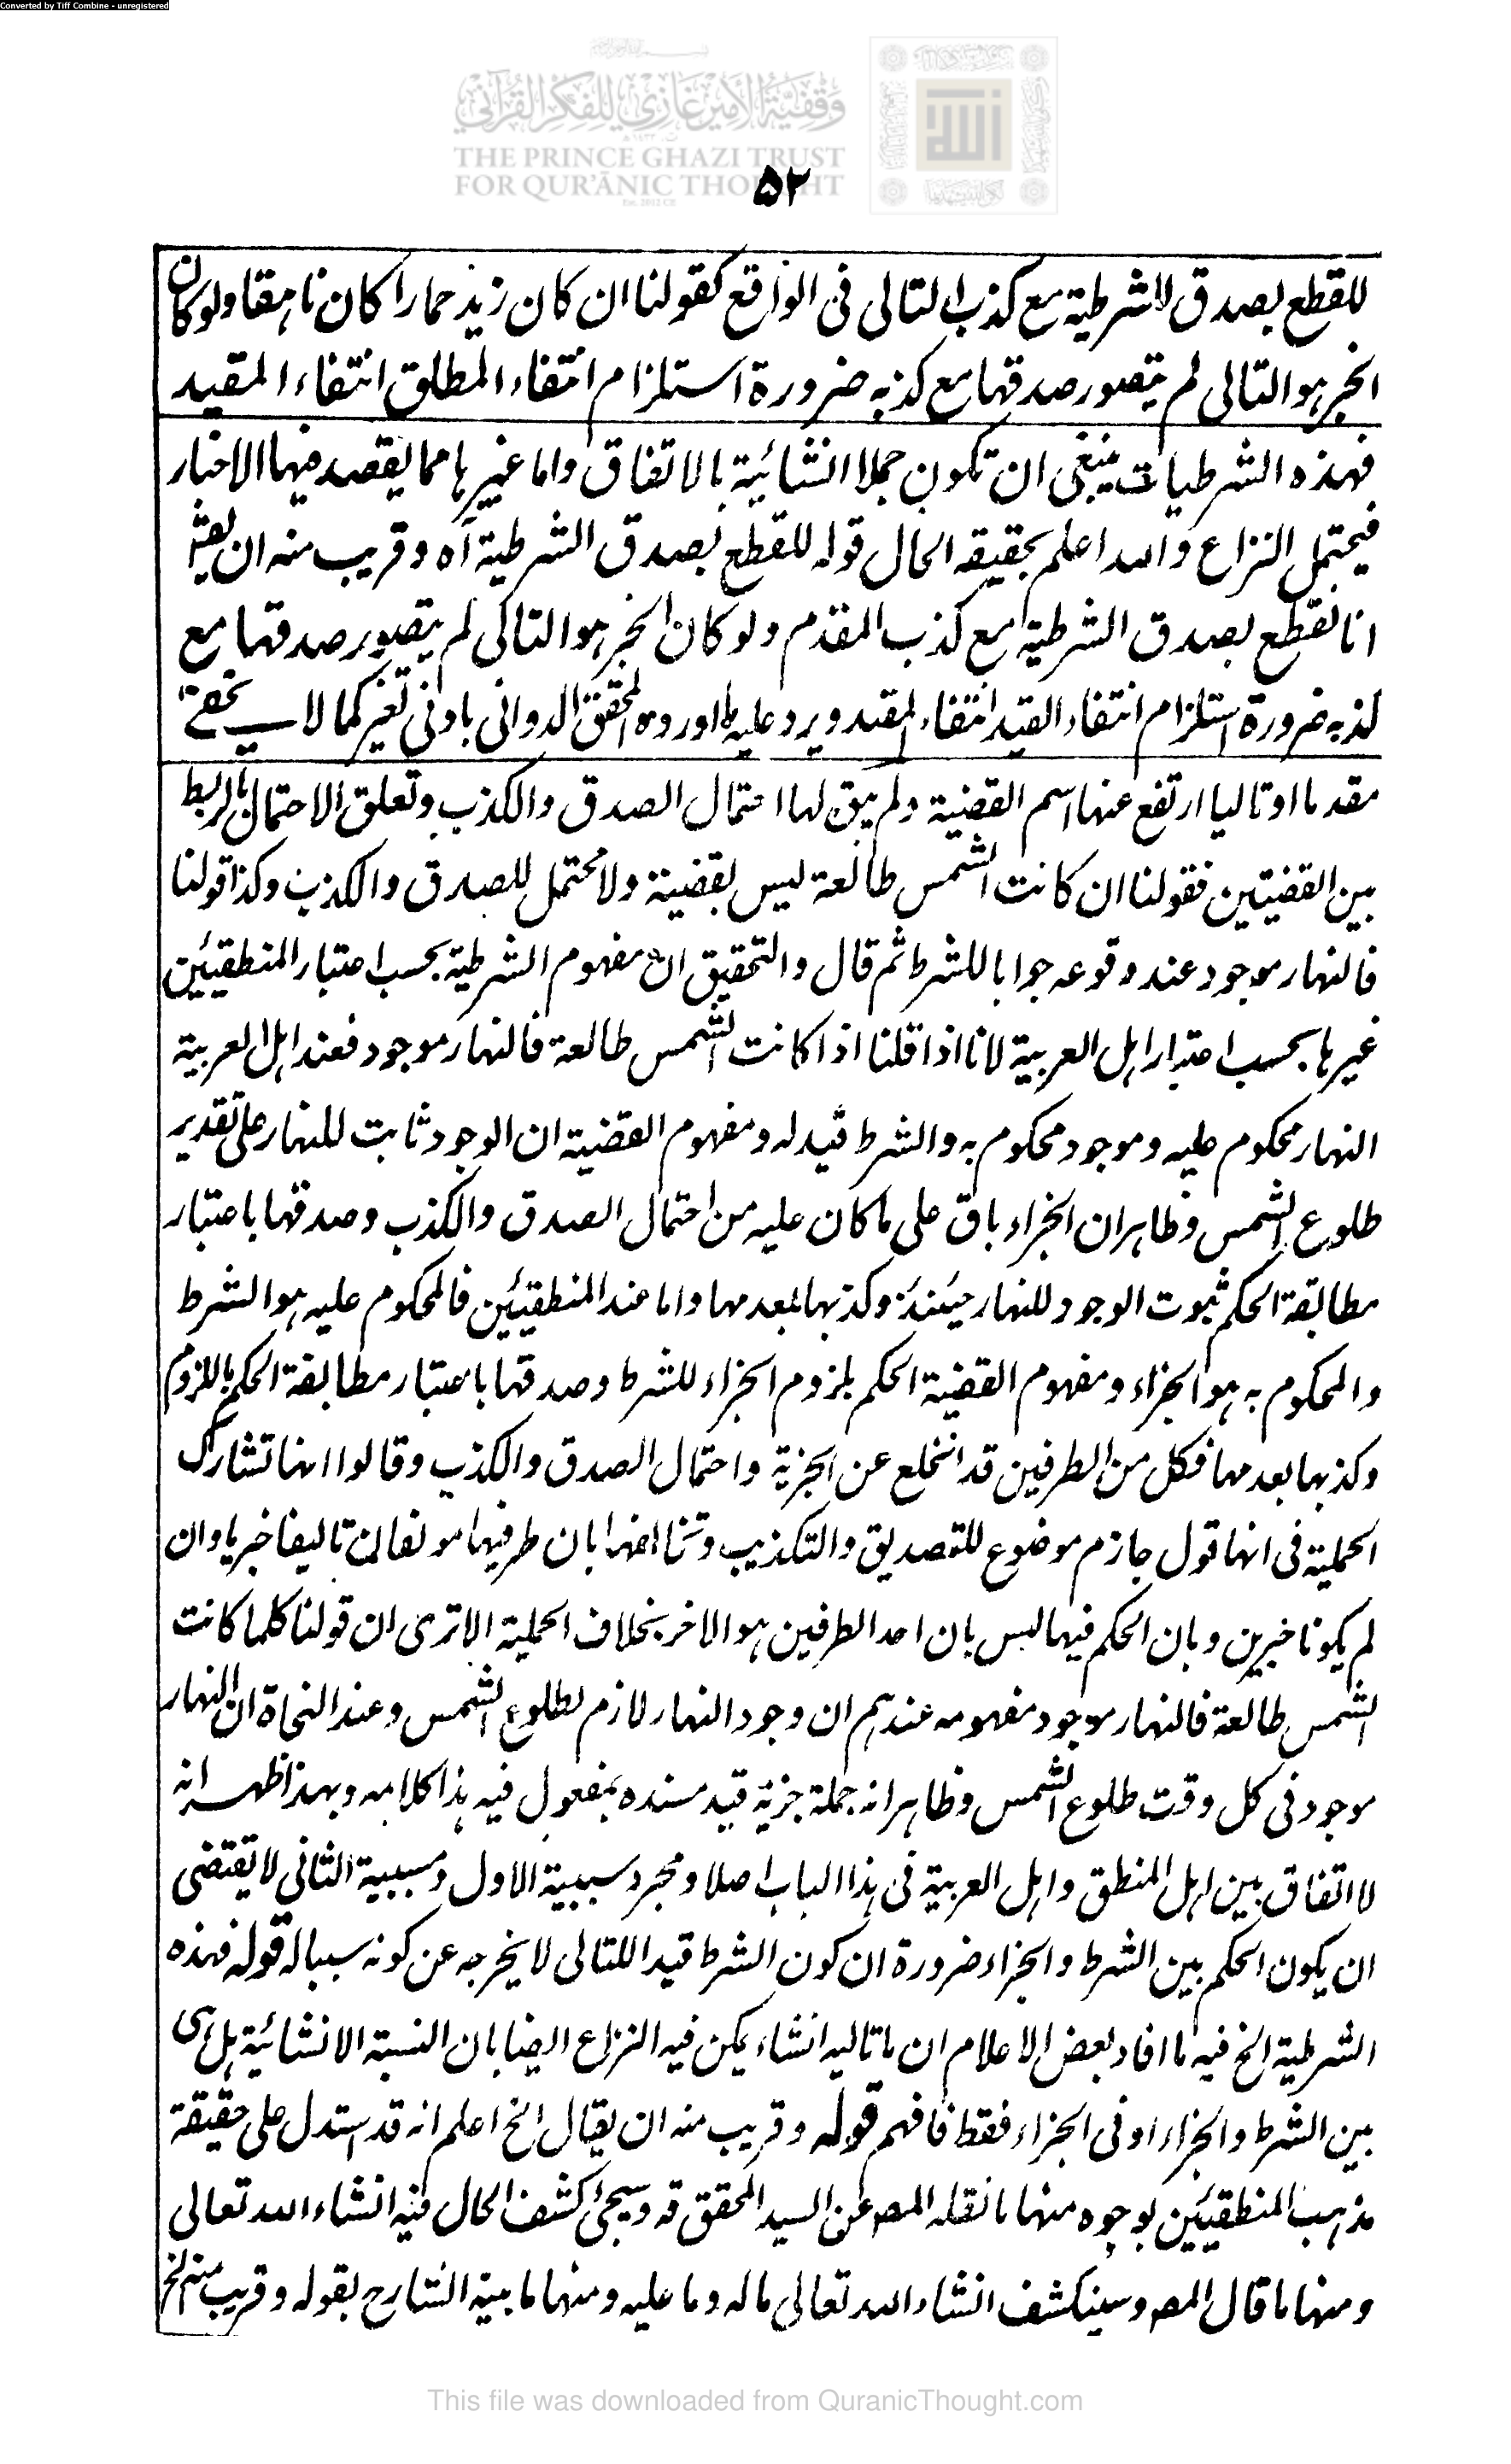 Converted by Tiff Combine - unregistered
وقفية الأمير غازي للفكر القرآني
THE PRINCE GHAZI TRUST
FOR QUR'ĀNIC THOUGHT
۵۲
للقطع بصدق الشرطية مع كذب التالى فى الواقع كقولنا ان كان زيد حمارا كان ناهقا ولو كان
الخبر هو التالى لم يتصور صدقها مع كذبه ضرورة استلزام انتفاء المطلق انتفاء المقيد
فهذه الشرطيات ينبغى ان تكون جملا انشائية بالاتفاق واما غيرها مما يقصد فيها الاخبار
فيحتمل النزاع والله اعلم بحقيقه الحال قوله للقطع بصدق الشرطية آه وقريب منه ان يقال
انا نقطع بصدق الشرطية مع كذب المقدم ولو كان الخبر هو التالى لم يتصور صدقها مع
كذبه ضرورة استلزام انتفاء القيد انتفاء المقيد ويرد عليه ما اورده المحقق الدوانى بادنى تغير كما لا يخفى
مقدما او تاليا ارتفع عنها اسم القضية ولم يبق لها احتمال الصدق والكذب وتعلق الاحتمال بالربط
بين القضيتين فقولنا ان كانت الشمس طالعة ليس بقضية ولا محتمل للصدق والكذب وكذا قولنا
فالنهار موجود عند وقوعه جوابا للشرط ثم قال والتحقيق ان مفهوم الشرطية بحسب اعتبار المنطقيين
غيرها بحسب اعتبار اهل العربية لانا اذا قلنا اذا كانت الشمس طالعة فالنهار موجود فعند اهل العربية
النهار محكوم عليه وموجود محكوم به والشرط قيد له ومفهوم القضية ان الوجود ثابت للنهار على تقدير
طلوع الشمس وظاهر ان الجزاء باق على ما كان عليه من احتمال الصدق والكذب وصدقها باعتبار
مطابقة الحكم ثبوت الوجود للنهار حينئذ وكذبها بعدمها واما عند المنطقيين فالمحكوم عليه هو الشرط
والمحكوم به هو الجزاء ومفهوم القضية الحكم بلزوم الجزاء للشرط وصدقها باعتبار مطابقة الحكم باللزوم
وكذبها بعدمها فكل من الطرفين قد انخلع عن الخبرية واحتمال الصدق والكذب وقالوا انها تشارك
الحملية فى انها قول جازم موضوع للتصديق والتكذيب وتخالفها بان طرفيها مؤلفان تاليفا خبريا وان
لم يكونا خبرين وبان الحكم فيها ليس بان احد الطرفين هو الاخر بخلاف الحملية الا ترى ان قولنا كلما كانت
الشمس طالعة فالنهار موجود مفهومه عندهم ان وجود النهار لازم لطلوع الشمس وعند النحاة ان النهار
موجود فى كل وقت طلوع الشمس وظاهر انه جملة خبرية قيد مسنده بمفعول فيه هذا كلامه وبهذا ظهر انه
لا اتفاق بين اهل المنطق واهل العربية فى هذا الباب اصلا ومجرد سببية الاول ومسببية الثانى لا يقتضى
ان يكون الحكم بين الشرط والجزاء ضرورة ان كون الشرط قيدا للتالى لا يخرجه عن كونه سببا له قوله فهذه
الشرطية الخ فيه ما افاد بعض الاعلام ان ما تاليه انشاء يمكن فيه النزاع ايضا بان النسبة الانشائية هل هى
بين الشرط والجزاء او فى الجزاء فقط فافهم قوله وقريب منه ان يقال الخ اعلم انه قد استدل على حقيقة
مذهب المنطقيين بوجوه منها ما نقله المصر عن السيد المحقق قه وسيجئ كشف الحال فيه انشاء الله تعالى
ومنها ما قال المصر وسينكشف انشاء الله تعالى ما له وما عليه ومنها ما بينه الشارح بقوله وقريب منه الخ
This file was downloaded from QuranicThought.com